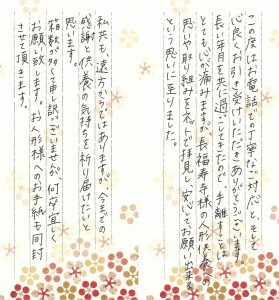 この度はお電話での丁寧なご対応と、そして
心良くお引き受けいただきありがとうございます。
長い年月を共に過ごしてきたので、手離すことは
とても心が痛みますが、長福寿寺様の人形供養への
思いや取り組みをネットで拝見し、安心してお願い出来る
という思いに至りました。
私共も、遠方からではありますが、今までの
感謝と供養の気持ちを祈り届けたいと
思います。
箱数が多くて申し訳ございませんが、何卒宜しく
お願い致します。お人形様へのお手紙も同封
させて頂きます。